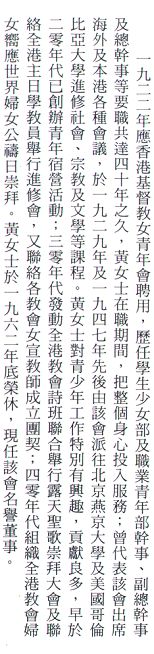 一九二二年應香港基督教女青年會聘用，歷任學生少女部及職業青年部幹事、副總幹事
及總幹事等要職共達四十年之久，黃女士在職期間，把整個身心投入服務；曾代表該會出席
海外及本港各種會議，於一九二九年及一九四七年先後由該會派往北京燕京大學及美國哥倫
比亞大學進修社會、宗教及文學等課程。黃女士對靑少年工作特別有興趣，貢獻良多，早於
二零年代已創辦靑年宿營活動；三零年代發動全港教會詩班聯合舉行露天聖歌崇拜大會及聯
絡全港主日學教員舉行進修會，又聯絡各教會女宣教師成立團契；四零年代組織全港教會婦
女嚮應世界婦女公禱日崇拜。黃女士於一九六二年底榮休，現任該會名譽董事。